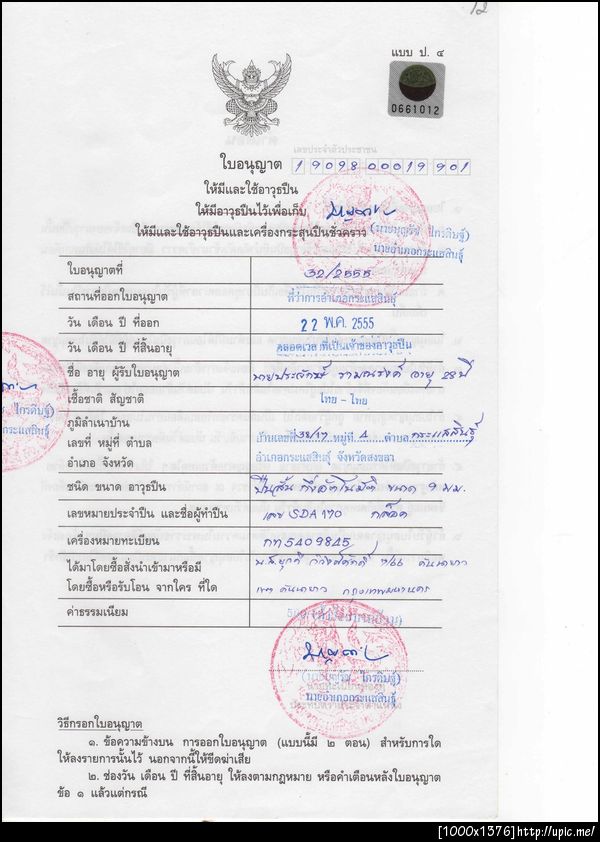 12
แบบ ป. ๔
0661012
เลขประจำตัวประชาชน
ใบอนุญาต 1 9 0 9 8 0 0 0 1 9 9 0 1
ให้มีและใช้อาวุธปืน
ให้มีอาวุธปืนไว้เพื่อเก็บ
ให้มีและใช้อาวุธปืนและเครื่องกระสุนปืนชั่วคราว ไกรดิษฐ์)
นายอำเภอกระแสสินธุ์
ใบอนุญาตที่ 32/2555
สถานที่ออกใบอนุญาต ที่ว่าการอำเภอกระแสสินธุ์
วัน เดือน ปี ที่ออก 22 พ.ค. 2555
วัน เดือน ปี ที่สิ้นอายุ ตลอดเวลาที่เป็นเจ้าของอาวุธปืน
ชื่อ อายุ ผู้รับใบอนุญาต นายประลักษ์ อายุ 28 ปี
เชื้อชาติ สัญชาติ ไทย - ไทย
ไกรดิษฐ์)
กระแสสินธุ์
ภูมิลำเนาบ้าน
เลขที่ หมู่ที่ ตำบล บ้านเลขที่ 38/17 หมู่ที่ 4 ตำบล กระแสสินธุ์
อำเภอ จังหวัด อำเภอกระแสสินธุ์ จังหวัดสงขลา
ชนิด ขนาด อาวุธปืน ปืนสั้น กึ่งอัตโนมัติ ขนาด 9 ม.ม.
เลขหมายประจำปืน และชื่อผู้ทำปืน เลข SDA170 กล็อค
เครื่องหมายทะเบียน กท5409845
ได้มาโดยซื้อสั่งนำเข้ามาหรือมี 7/66 คันนายาว
โดยซื้อหรือรับโอน จากใคร ที่ใด เขต คันนายาว กรุงเทพมหานคร
ค่าธรรมเนียม
ไกรดิษฐ์)
นายอำเภอกระแสสินธุ์
วิธีกรอกใบอนุญาต
๑. ข้อความข้างบน การออกใบอนุญาต (แบบนี้มี ๒ ตอน) สำหรับการใด
ให้ลงรายการนั้นไว้ นอกจากนี้ให้ขีดฆ่าเสีย
๒. ช่องวัน เดือน ปี ที่สิ้นอายุ ให้ลงตามกฎหมาย หรือคำเตือนหลังใบอนุญาต
ข้อ ๑ แล้วแต่กรณี
[1000x1376]http://upic.me/